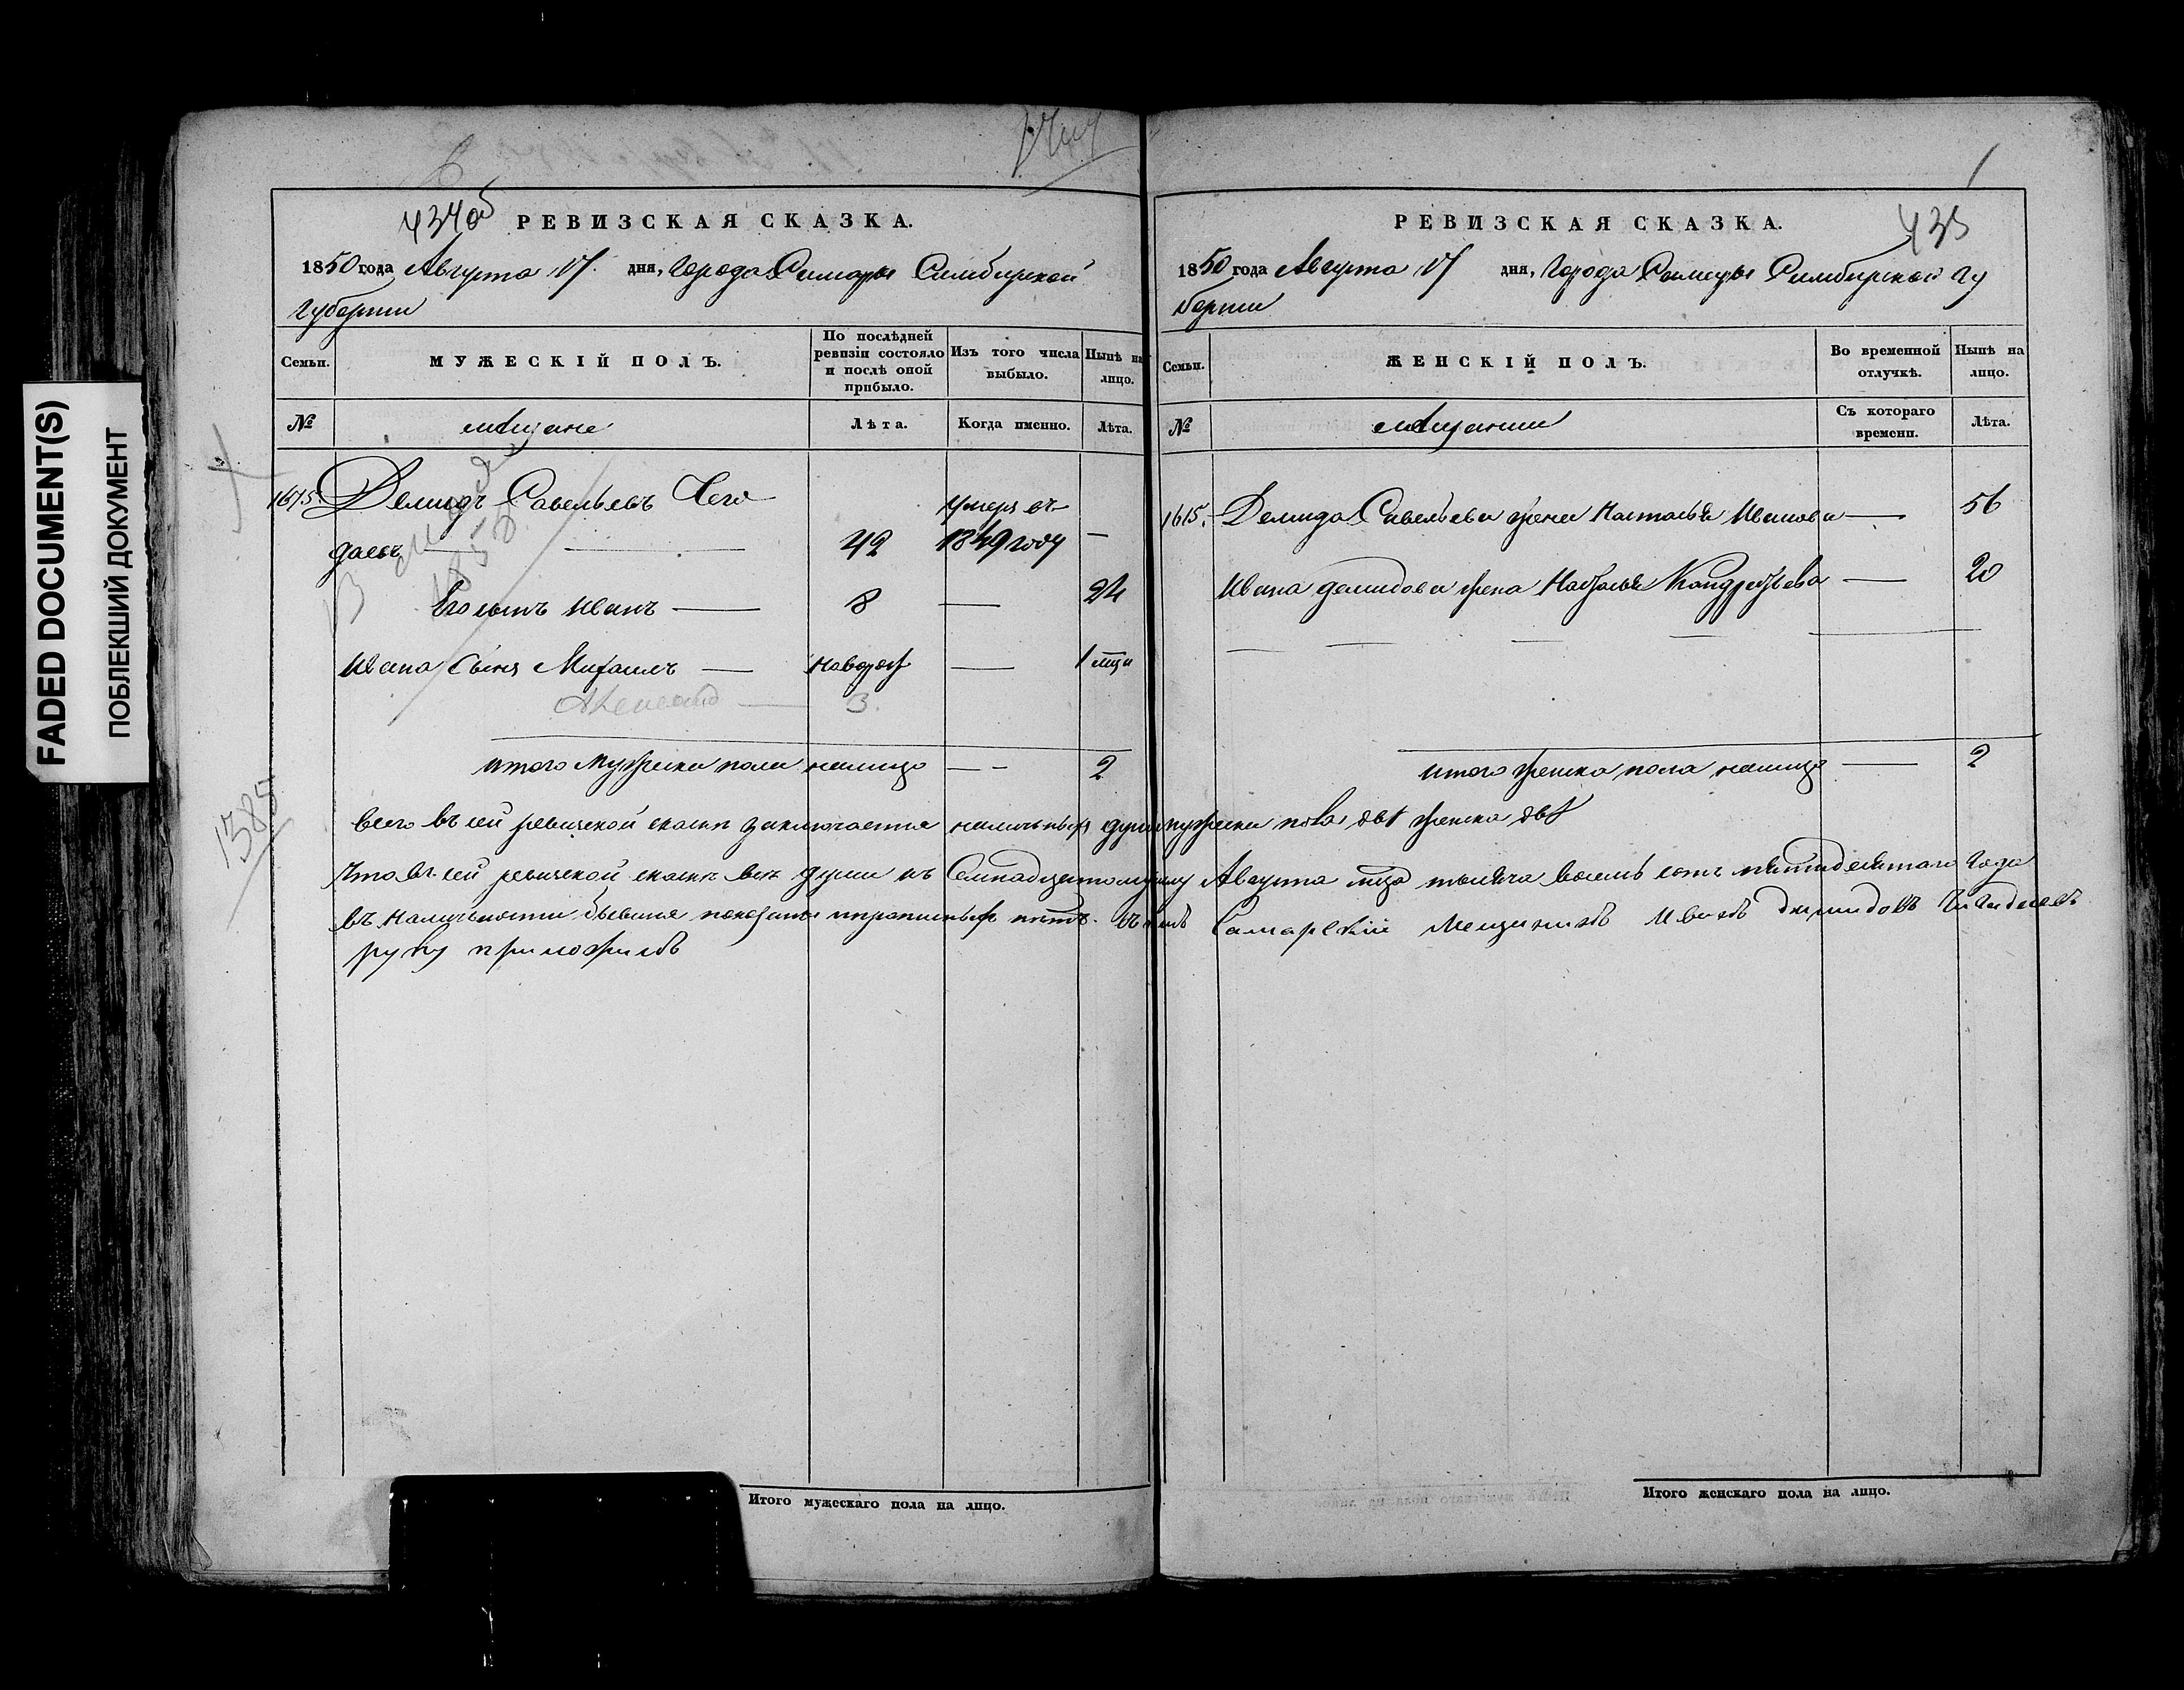 FADED DOCUMENT(S)
ПОБЛЕКШИЙ ДОКУМЕНТ
434об
РЕВИЗСКАЯ СКАЗКА.
1850 года Августа 17. дня, Города Самары Симбирской
губернии
Семьи.
МУЖЕСКІЙ ПОЛЪ.
По послѣдней ревизіи состояло и послѣ оной прибыло.
Изъ того числа выбыло.
Нынѣ на лицо.
№
мѣщане
Лѣта.
Когда именно.
Лѣта.
1615. Демидъ Савельевъ
умеръ въ
42 1849 году —
Его сынъ Иванъ — 8 — 24
Ивана сынъ Михаилъ — новорож — 1 мца
3.
итого мужеска пола налицо — — 2
1385
всего въ сей ревизской сказкѣ заключается наличныхъ душъ мужеска пола двѣ женска двѣ
Что въ сей ревизской сказкѣ всѣ души къ Семнадцатому Августа мца тысяча восемь сотъ пятидесятаго Года
въ наличности бывшія показаны и прописныхъ нѣтъ. Въ томъ Самарский Мещанинъ Иванъ демидовъ
руку приложилъ
Итого мужескаго пола на лицо.
435
РЕВИЗСКАЯ СКАЗКА.
1850 года Августа 17 дня, Города Самары Симбирской гу
берніи
Семьи.
ЖЕНСКІЙ ПОЛЪ.
Во временной отлучкѣ.
Нынѣ на лицо.
№
мѣщанки
Съ котораго времени.
Лѣта.
1615. Демида Савельева жена Настасья Иванова — 56
Ивана демидова жена Наталья Кондратьева — 20
итого женска пола налицо — 2
Итого женскаго пола на лицо.